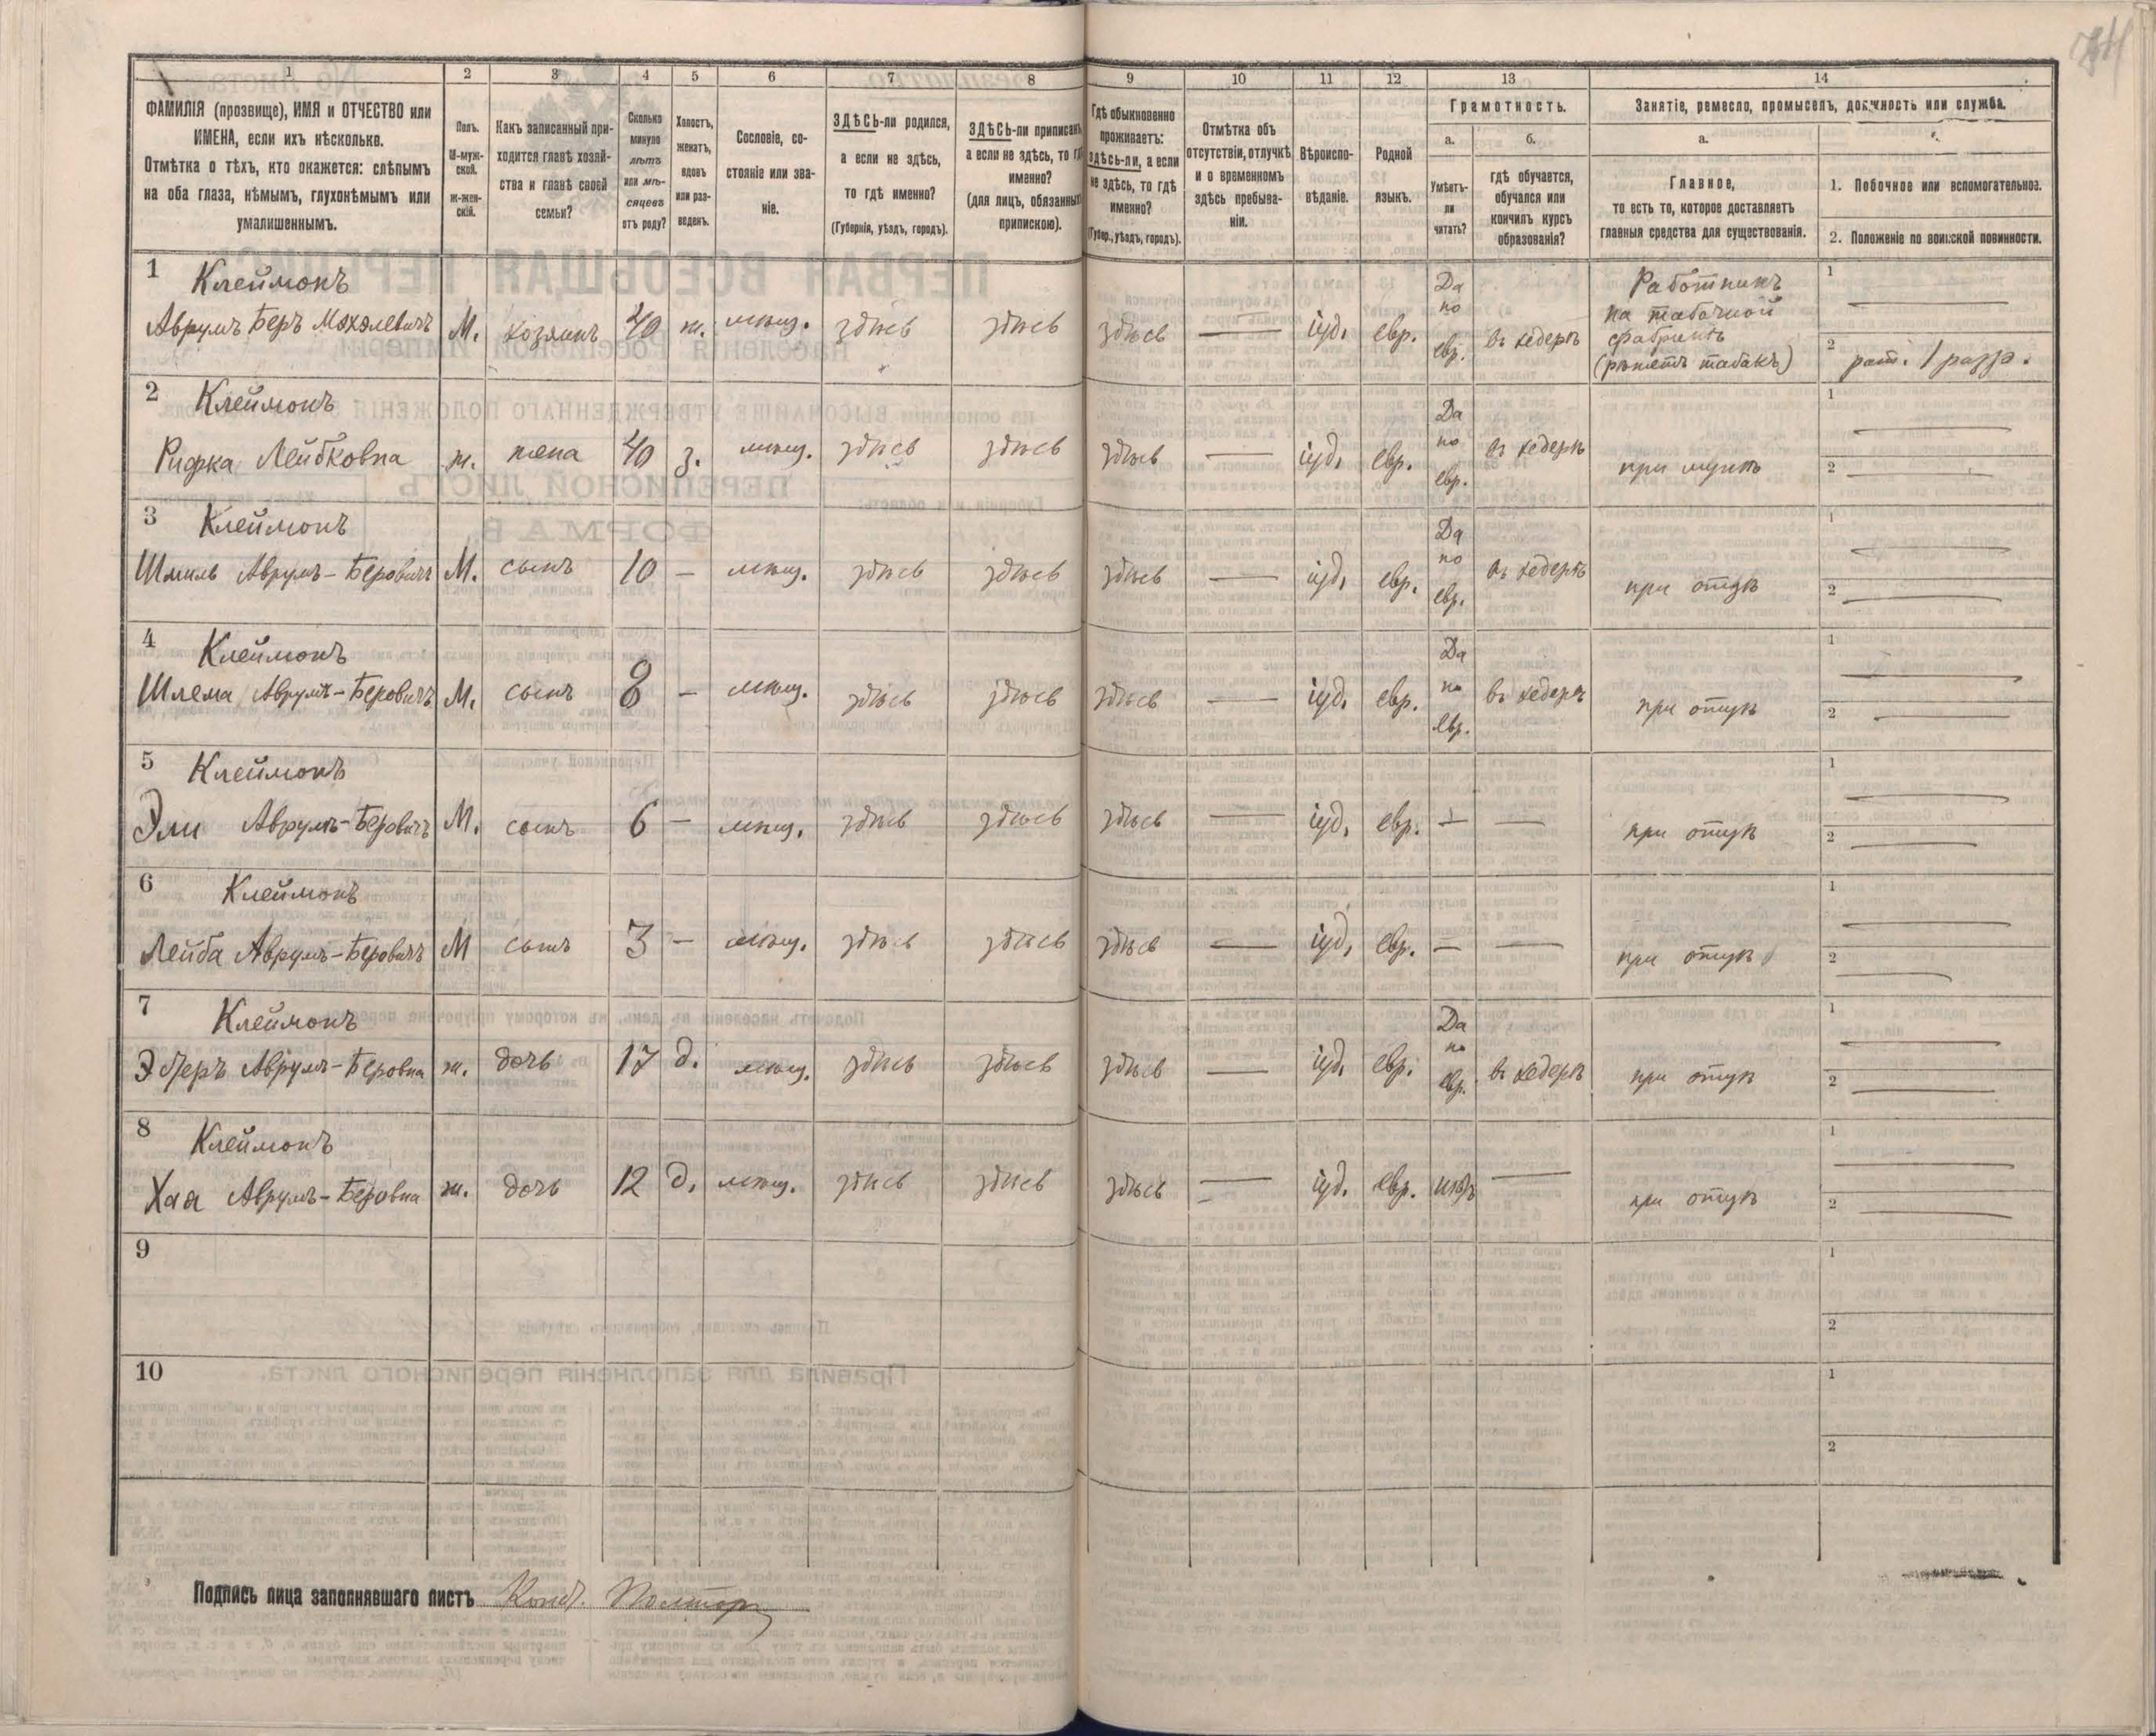 1 2 3 4 5 6 7 8 9 10 11 12 13 14
ФАМИЛІЯ (прозвище), ИМЯ и ОТЧЕСТВО или
ИМЕНА, если ихъ нѣсколько.
Отмѣтка о тѣхъ, кто окажется: слѣпымъ
на оба глаза, нѣмымъ, глухонѣмымъ или
умалишеннымъ.
Полъ.
М-муж-
ской.
ж-жен-
скій.
Какъ записанный при-
ходится главѣ хозяй-
ства и главѣ своей
семьи?
Сколько
минуло
лѣтъ
или мѣ-
сяцевъ
отъ роду?
Холостъ,
женатъ,
вдовъ
или раз-
веденъ.
Сословіе, со-
стояніе или зва-
ніе.
ЗДѢСЬ-ли родился,
а если не здѣсь,
то гдѣ именно?
(Губернія, уѣздъ, городъ).
ЗДѢСЬ-ли приписанъ
а если не здѣсь, то гдѣ
именно?
(для лицъ, обязанныхъ
припискою).
Гдѣ обыкновенно
проживаетъ:
здѣсь-ли, а если
не здѣсь, то гдѣ
именно?
(Губер., уѣздъ, городъ).
Отмѣтка объ
отсутствіи, отлучкѣ
и о временномъ
здѣсь пребыва-
ніи.
Вѣроиспо-
вѣданіе.
Родной
языкъ.
Грамотность.
а.
Умѣетъ-
ли
читать?
б.
гдѣ обучается,
обучался или
кончилъ курсъ
образованія?
Занятіе, ремесло, промыселъ, должность или служба.
а.
Главное,
то есть то, которое доставляетъ
главныя средства для существованія.
1. Побочное или вспомогательное.
2. Положеніе по воинской повинности.
1 Клеймонъ
Аврумъ Беръ Мохэлевичъ М. хозяинъ 40 ж. мѣщ. здѣсь здѣсь здѣсь — іуд. евр. Да по евр. въ хедерѣ Работникъ на табачной фабрикѣ (рѣжетъ табакъ) 1 — 2 рат. 1 разр.
2 Клеймонъ
Рифка Лейбковна ж. жена 40 з. мѣщ. здѣсь здѣсь здѣсь — іуд. евр. Да по евр. въ хедерѣ при мужѣ 1 — 2 —
3 Клеймонъ
Шмиль Аврумъ-Беровичъ М. сынъ 10 — мѣщ. здѣсь здѣсь здѣсь — іуд. евр. Да по евр. въ хедерѣ при отцѣ 1 — 2 —
4 Клеймонъ
Шлема Аврумъ-Беровичъ М. сынъ 8 — мѣщ. здѣсь здѣсь здѣсь — іуд. евр. Да по евр. въ хедерѣ при отцѣ 1 — 2 —
5 Клеймонъ
Эли Аврумъ-Беровичъ М. сынъ 6 — мѣщ. здѣсь здѣсь здѣсь — іуд. евр. — — при отцѣ 1 — 2 —
6 Клеймонъ
Лейба Аврумъ-Беровичъ М сынъ 3 — мѣщ. здѣсь здѣсь здѣсь — іуд. евр. — — при отцѣ 1 — 2 —
7 Клеймонъ
Аврумъ-Беровна ж. дочь 17 д. мѣщ. здѣсь здѣсь здѣсь — іуд. евр. Да по евр. въ хедерѣ при отцѣ 1 — 2 —
8 Клеймонъ
Хая Аврумъ-Беровна ж. дочь 12 д. мѣщ. здѣсь здѣсь здѣсь — іуд. евр. нѣтъ — при отцѣ 1 — 2 —
9 1 2
10 1 2
Подпись лица заполнявшаго листъ